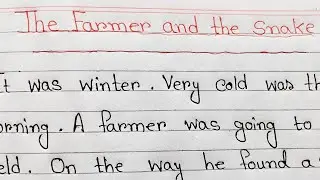 The Farmer and the Snake
It was winter. Very cold was th
orning. A farmer was going to
eld. On the way he found a